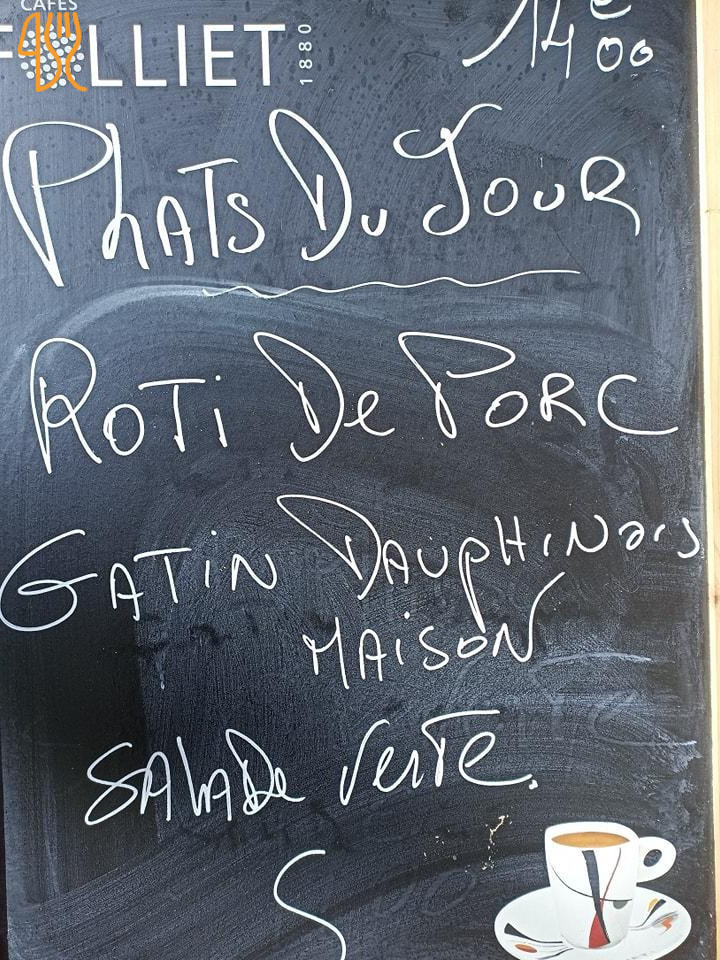 CAFÉS
FOLLIET
1880
14€00
Plats Du Jour
Roti De Porc
Gatin Dauphinois
Maison
Salade verte.